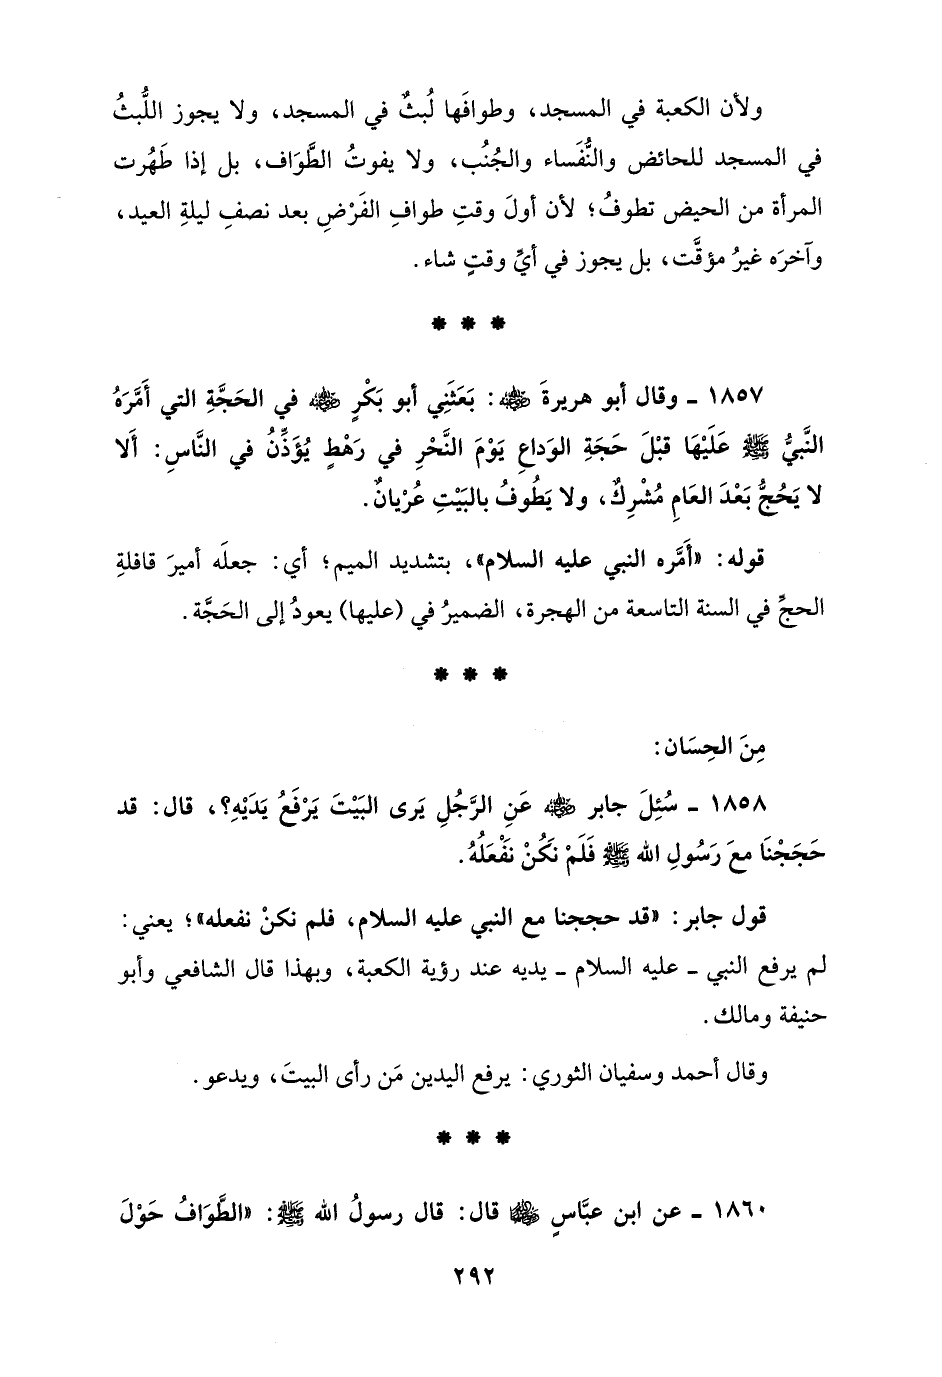 ولأن الكعبة في المسجد، وطوافَها لُبثٌ في المسجد، ولا يجوز اللُّبثُ
في المسجد للحائض والنُّفَساء والجُنُب، ولا يفوتُ الطَّوَاف، بل إذا طَهُرت
المرأة من الحيض تطوفُ؛ لأن أولَ وقتِ طوافِ الفَرْضِ بعد نصفِ ليلةِ العيد،
وآخرَه غيرُ مؤقَّت، بل يجوز في أيِّ وقتٍ شاء.
* * *
١٨٥٧ ـ وقال أبو هريرةَ ﵁: بَعَثَنِي أبو بَكْرٍ ﵁ في الحَجَّةِ التي أَمَّرَهُ
النَّبيُّ ﷺ عَلَيْهَا قبْلَ حَجَةِ الوداعِ يَوْمَ النَّحْرِ في رَهْطٍ يُؤَذِّنُ في النَّاسِ: أَلا
لا يَحُجُّ بَعْدَ العَامِ مُشْرِكٌ، ولا يَطُوفُ بالبَيْتِ عُرْيانٌ.
قوله: «أَمَّره النبي عليه السلام»، بتشديد الميم؛ أي: جعلَه أميرَ قافلةِ
الحجِّ في السنة التاسعة من الهجرة، الضميرُ في (عليها) يعودُ إلى الحَجَّة.
* * *
مِنَ الحِسَان:
١٨٥٨ ـ سُئِلَ جابر ﵁ عَنِ الرَّجُلِ يَرى البَيْتَ يَرْفَعُ يَدَيْهِ؟، قال: قد
حَجَجْنَا معَ رَسُولِ الله ﷺ فَلَمْ نَكُنْ نَفْعَلُهُ.
قول جابر: «قد حججنا مع النبي عليه السلام، فلم نكنْ نفعله»؛ يعني:
لم يرفع النبي ـ عليه السلام ـ يديه عند رؤية الكعبة، وبهذا قال الشافعي وأبو
حنيفة ومالك.
وقال أحمد وسفيان الثوري: يرفع اليدين مَن رأى البيتَ، ويدعو.
* * *
١٨٦٠ ـ عن ابن عبَّاسٍ ﵄ قال: قال رسولُ الله ﷺ: «الطَّوَافُ حَوْلَ
٢٩٢